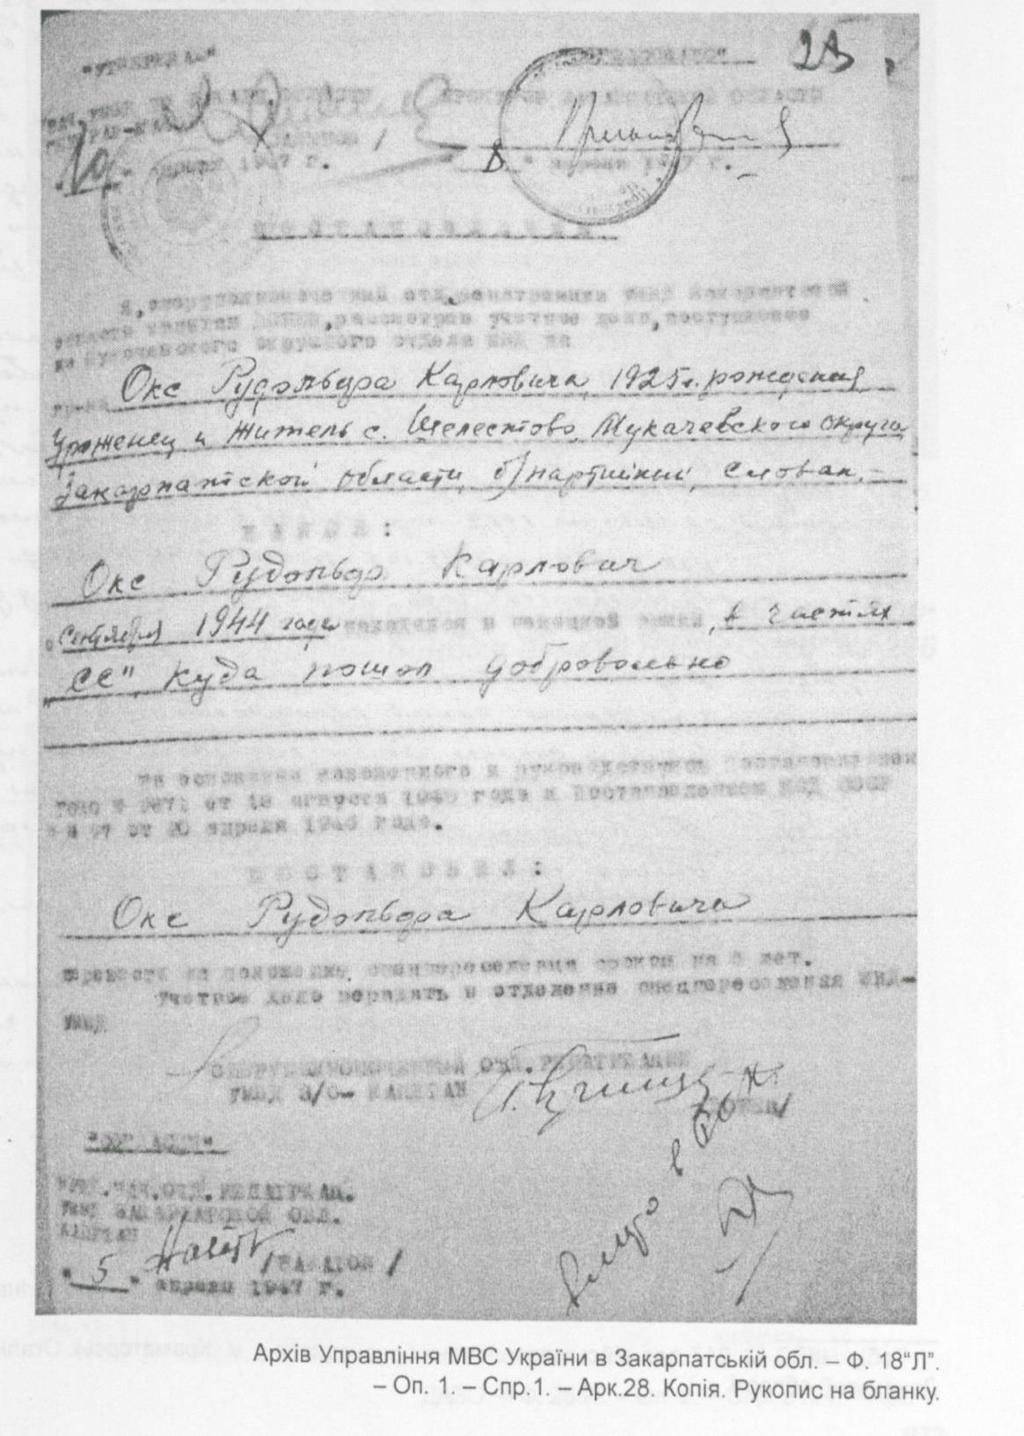 "УТВЕРЖДАЮ"
28
ПРОКУРОР ЗАКАРПАТСКОЙ ОБЛАСТИ
19 " апреля 1947 г.
8 " апреля 1947 г.
ПОСТАНОВЛЕНИЕ
Я, оперуполномоченный отд. репатриации УМВД Закарпатской
области капитан, рассмотрев учетное дело, поступившее
из Мукачевского окружного отдела МВД на
гр-на Окс Рудольфа Карловича, 1925 г. рождения,
Уроженец и житель с. Шелестово, Мукачевского округа
Закарпатской области, б/партийный, словак. –
НАШЕЛ:
Окс Рудольф Карлович
с сентября 1944 года находился в немецкой армии, в частях
"СС", куда пошол добровольно
На основании изложенного и руководствуясь Постановлением
ГОКО № от 18 августа 1945 года и Постановлением МВД СССР
№ 97 от 20 апреля 1946 года.
ПОСТАНОВИЛ:
Окс Рудольфа Карловича
перевести на положение спецпереселенца сроком на 6 лет.
Учетное дело передать в отделение спецпереселения МВД-
УМВД
ОПЕРУПОЛНОМОЧЕННЫЙ ОТД. РЕПАТРИАЦИИ
УМВД З/О- КАПИТАН
"СОГЛАСЕН"
НАЧ. ОТД. РЕПАТРИАЦ.
УМВД ЗАКАРПАТСКОЙ ОБЛ.
КАПИТАН
" 5 " апреля 1947 г.
Архів Управління МВС України в Закарпатській обл. – Ф. 18"Л".
– Оп. 1. – Спр.1. – Арк.28. Копія. Рукопис на бланку.